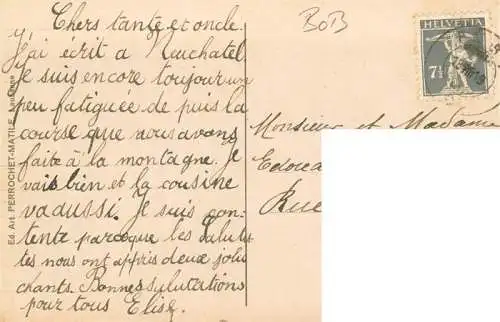 Chers tante et oncle.
J'ai écrit a Neuchatel
Je suis encore toujour un
peu fatiguée de puis la
course que nous avons
faite à la montagne. Je
vais bien et la cousine
va aussi. Je suis con-
tente parcoque les Salutis
tes nous ont appres deux jolis
chants. Bonnes salutations
pour tous Elise.
Ed. Art. PERROCHET-MATILE, Lausanne
BOB
HELVETIA
7½
Monsieur et Madame
Edoua
Rue